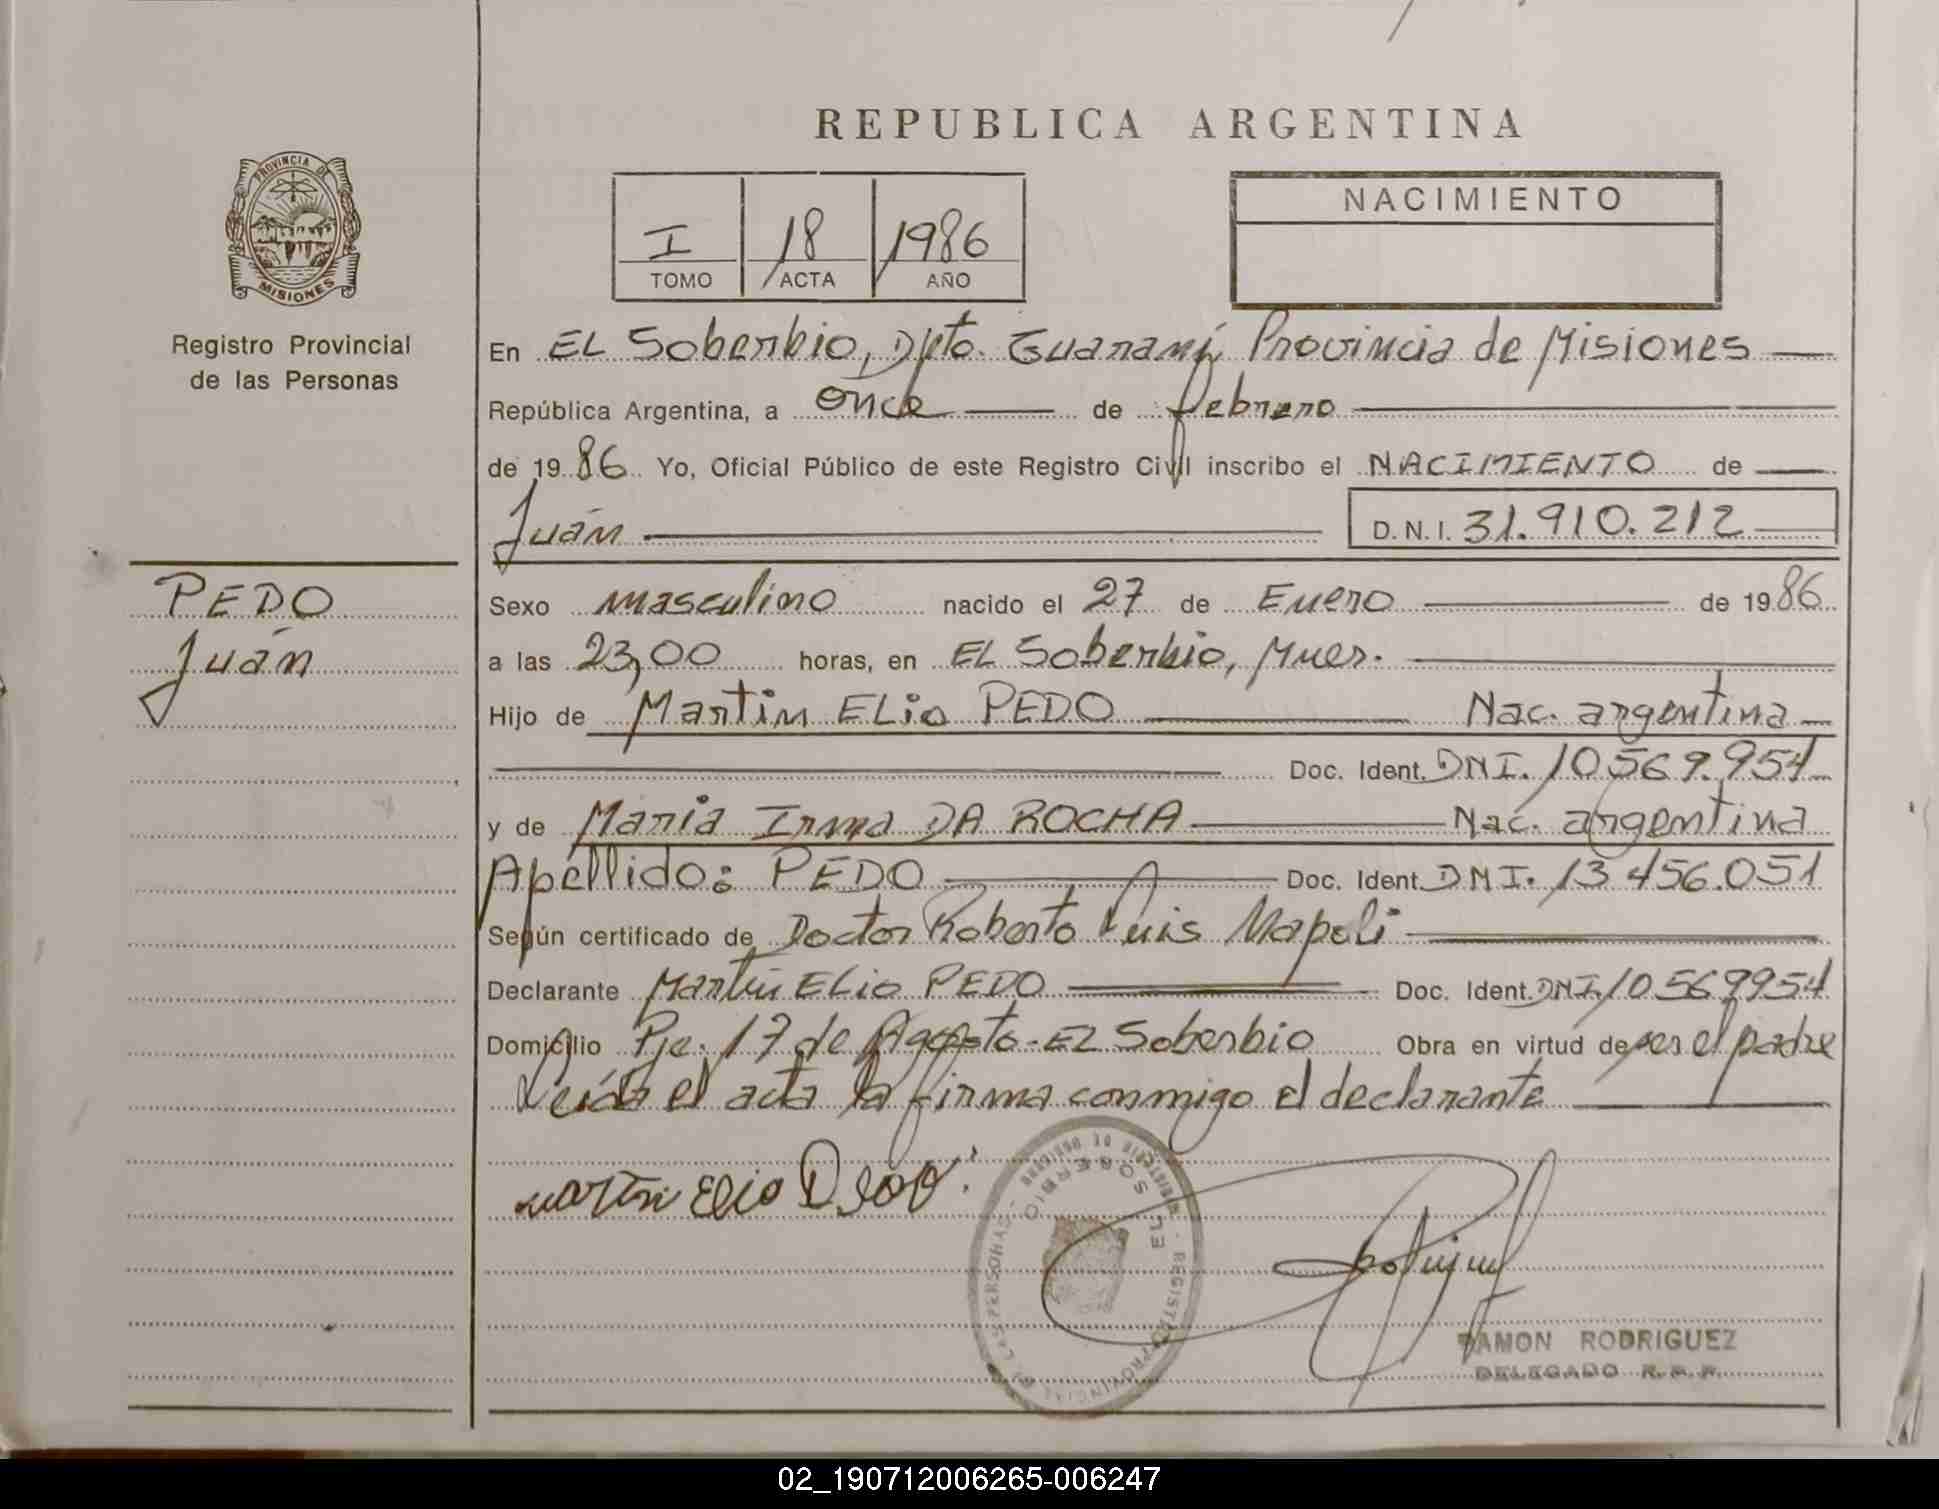 REPUBLICA ARGENTINA
PROVINCIA DE
MISIONES
Registro Provincial
de las Personas
I TOMO
18 ACTA
1986 AÑO
NACIMIENTO
En EL Soberbio, Dpto. Guaraní Provincia de Misiones
República Argentina, a once de febrero
de 1986 Yo, Oficial Público de este Registro Civil inscribo el NACIMIENTO de
Juán D.N.I. 31.910.212
PEDO
Juán
Sexo masculino nacido el 27 de Enero de 1986
a las 23,00 horas, en EL Soberbio, Mnes.
Hijo de Martin ELio PEDO Nac. argentina
Doc. Ident. DNI. 10.569.954
y de Maria Irma DA ROCHA Nac. argentina
Apellido: PEDO Doc. Ident. DNI. 13.456.051
Según certificado de Doctor Roberto Luis Napoli
Declarante Martin ELio PEDO Doc. Ident. DNI 10569954
Domicilio Pje. 17 de Agosto - EL Soberbio Obra en virtud de ser el padre
Leída el acta la firma conmigo el declarante
martin Elio
EL SOBERBIO
PROVINCIA DE MISIONES - REGISTRO PROVINCIAL DE LAS PERSONAS -
RAMON RODRIGUEZ
DELEGADO R.P.P.
02_190712006265-006247